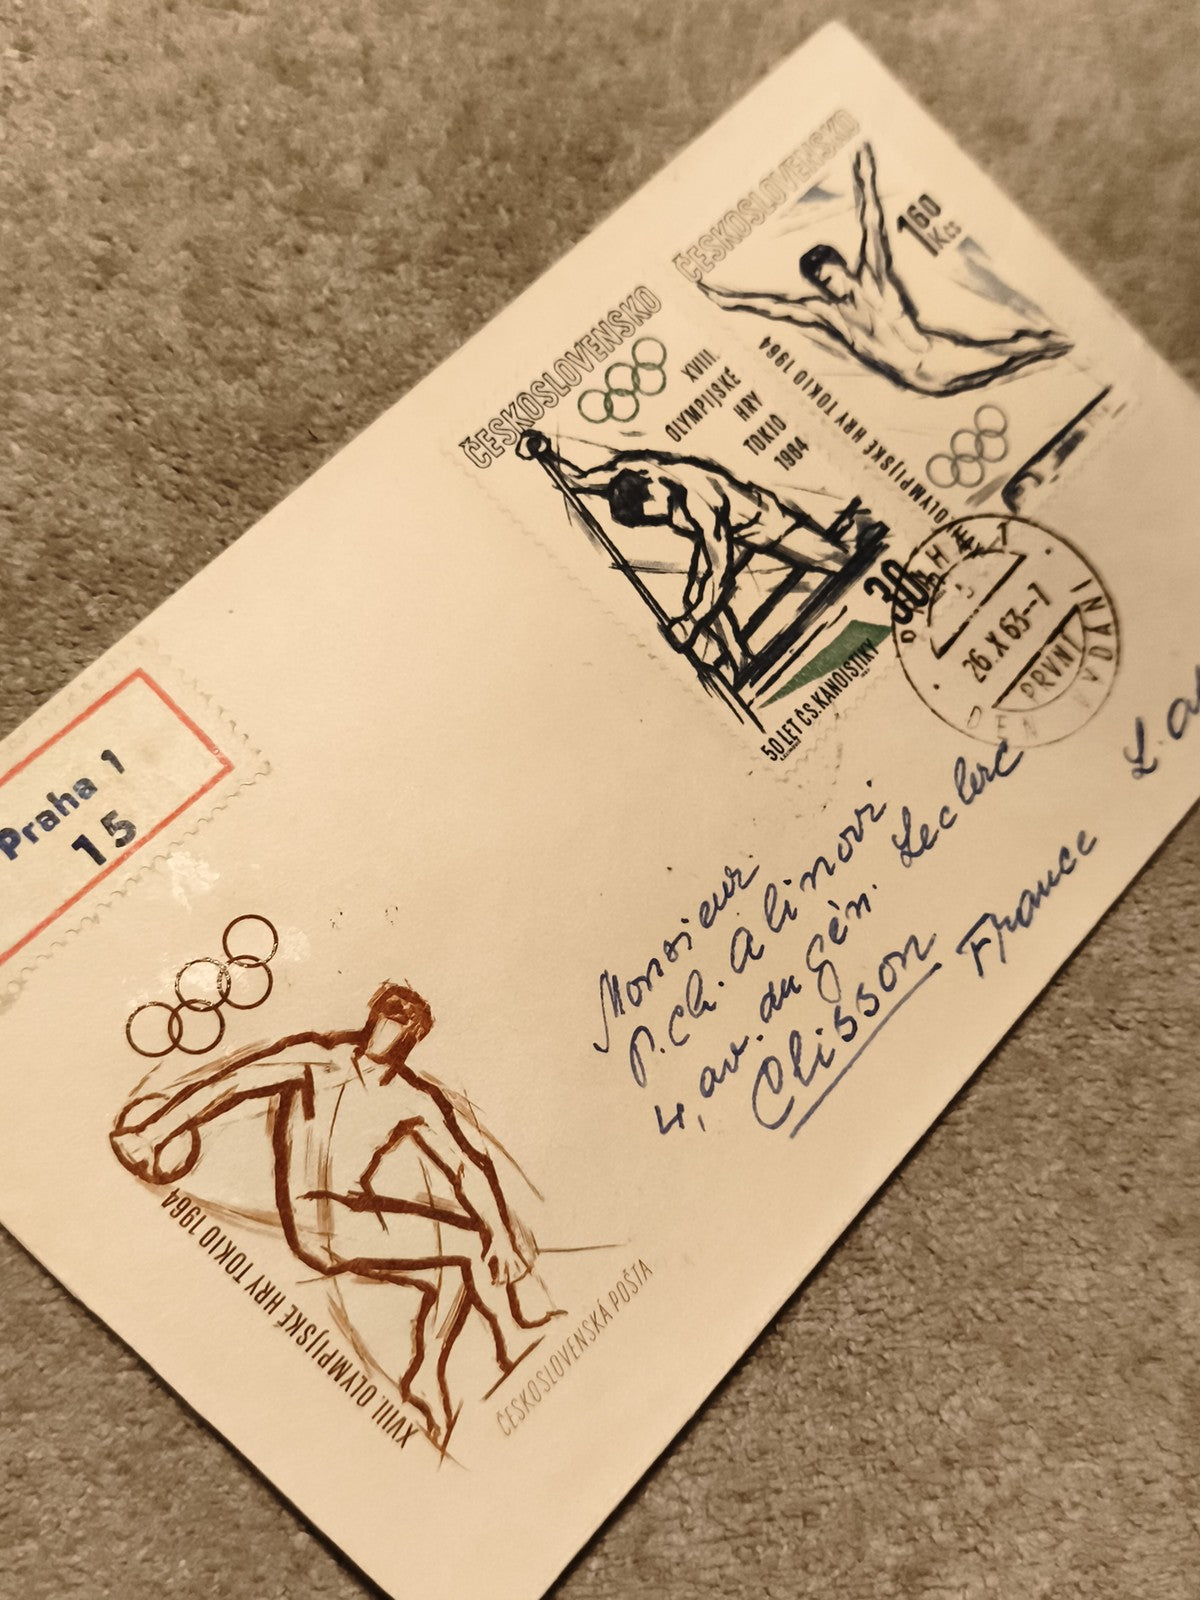 ČESKOSLOVENSKO
1 60
Kčs
XVIII. OLYMPIJSKÉ HRY TOKIO 1964
ČESKOSLOVENSKO
XVIII.
OLYMPIJSKÉ
HRY
TOKIO
1964
30
50 LET ČS. KANOISTIKY
PRAHA 1
26.X 63--7
PRVNÍ
DEN VYDÁNÍ
Praha 1
15
Monsieur
P. Ch. Alinovi
4, av. du Gén. Leclerc
Clisson
France
XVIII. OLYMPIJSKÉ HRY TOKIO 1964
ČESKOSLOVENSKÁ POŠTA